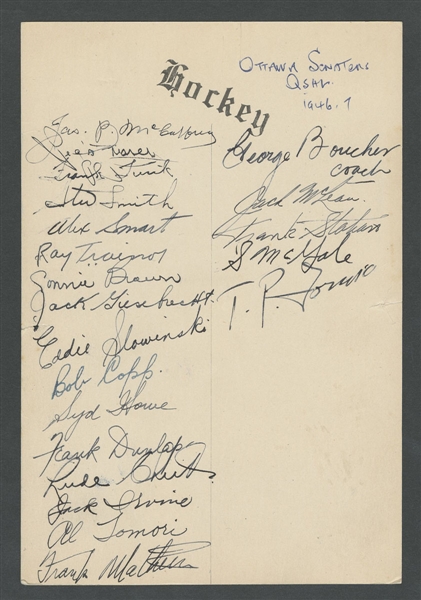 Hockey
Ottawa Senators
QSHL
1946-7
Jas. P. McCaffrey
Frank
Stu Smith
Alex Smart
Ray Trainor
Connie Brown
Jack Giesebrecht
Eddie Slowinski
Bob Copp.
Syd Howe
Frank Dunlap
Rude
Jack Irvine
Al Tomori
Frank Mathers
George Boucher
coach
Jack McLean
Frank
S McGale
T. P.